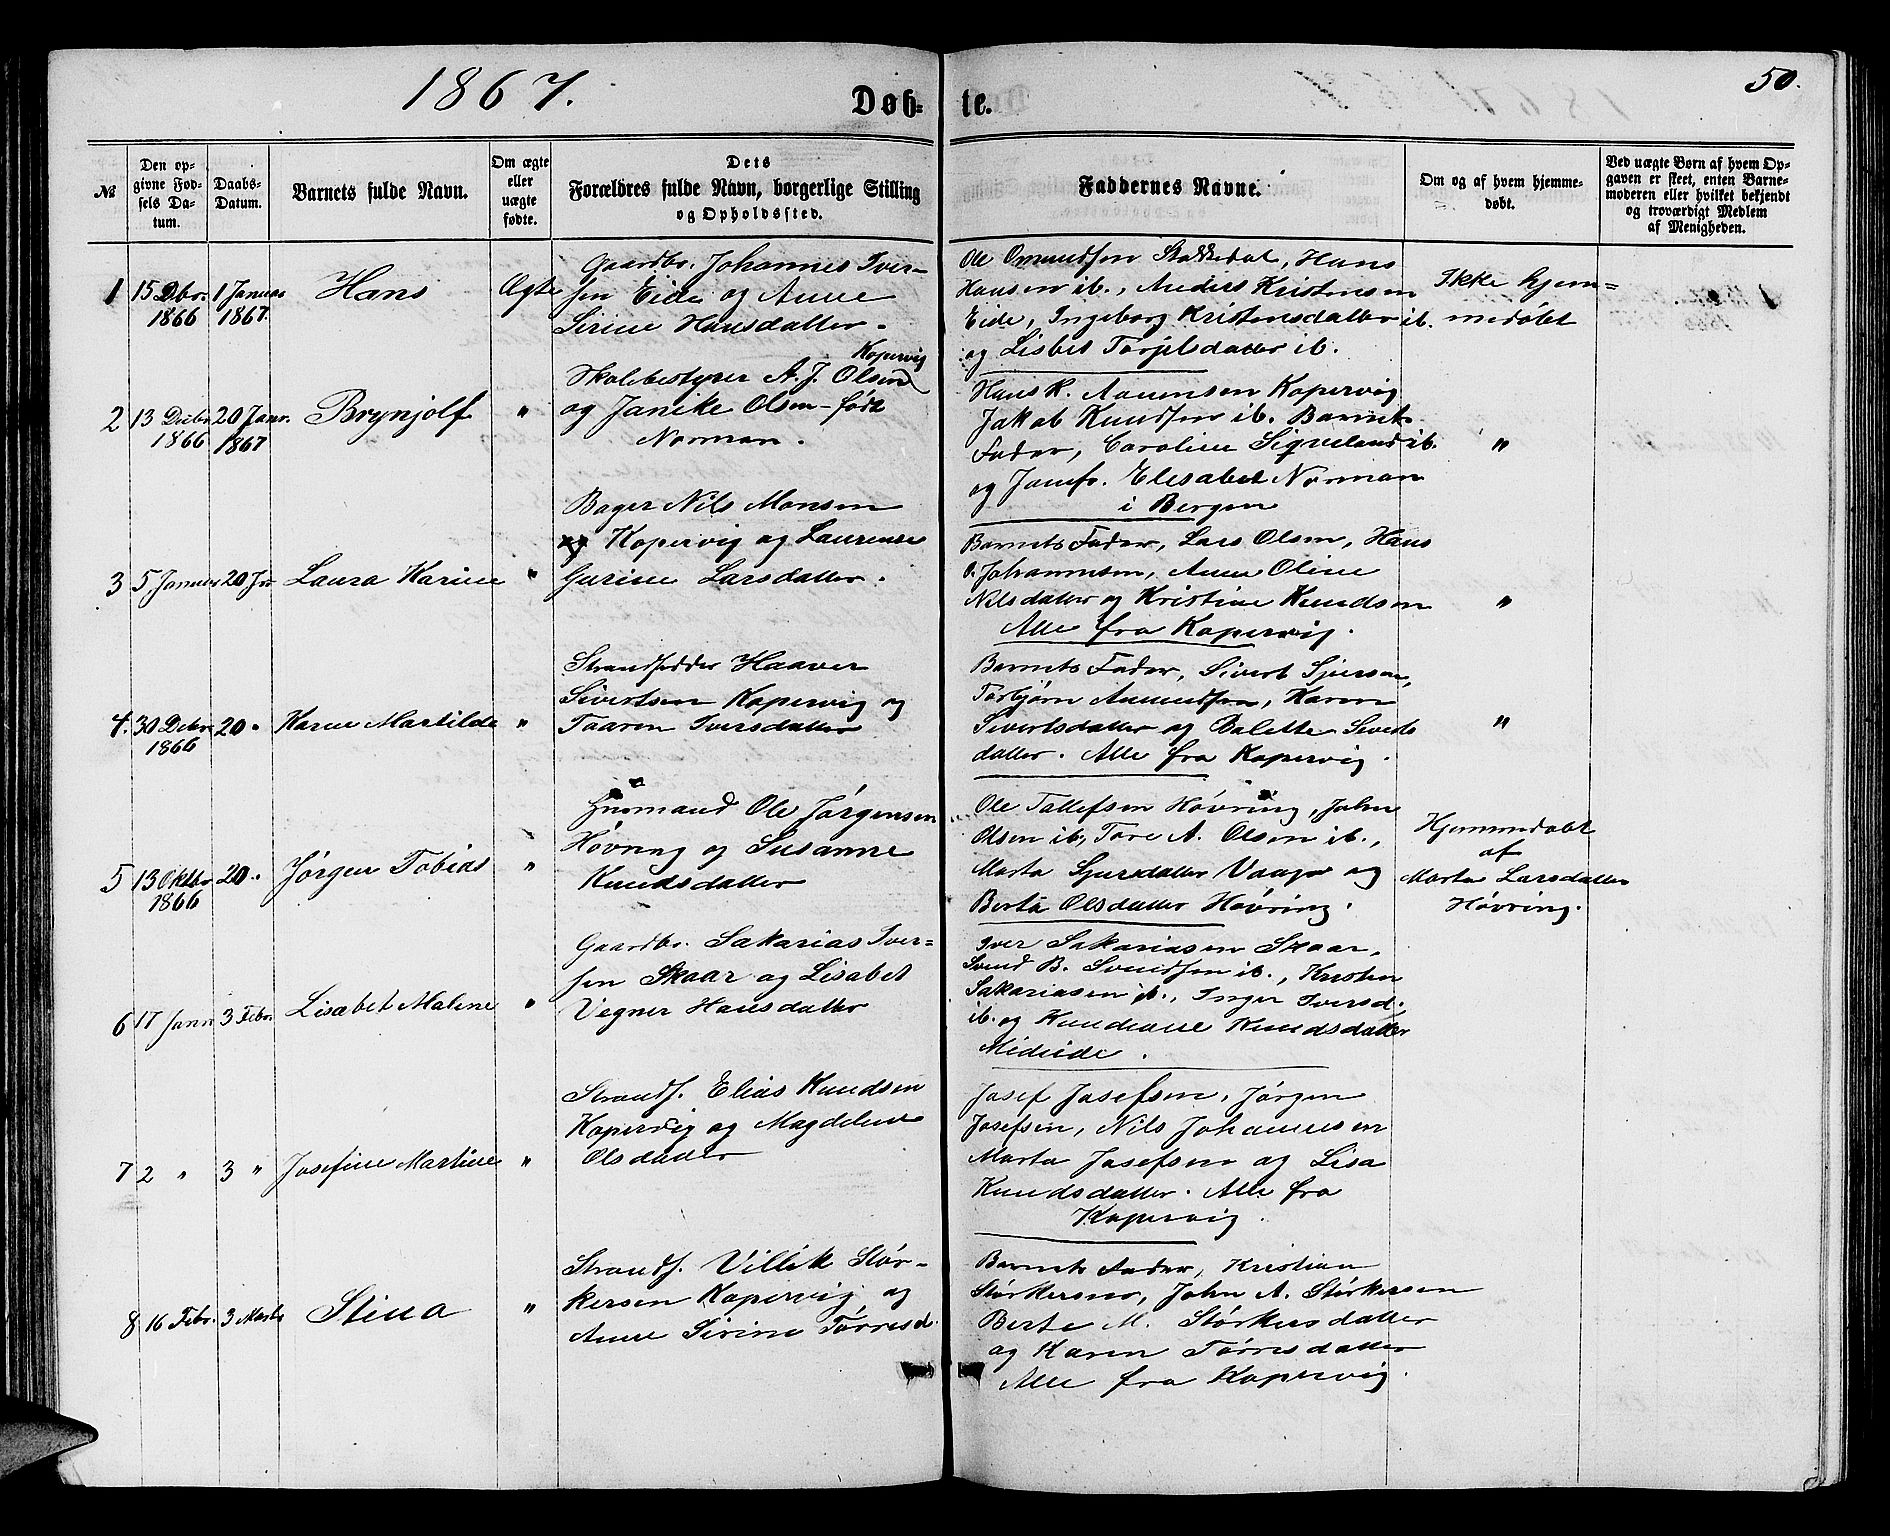 1867.
Døb-
te.
50.
№
Den op-
givne Fød-
sels Da-
tum.
Daabs-
Datum.
Barnets fulde Navn.
Om ægte
eller
uægte
fødte.
Dets
Forældres fulde Navn, borgerlige Stilling
og Opholdssted.
Faddernes Navne.
Om og af hvem hjemme-
døbt.
Ved uægte Børn af hvem Op-
gaven er skeet, enten Barne-
moderen eller hvilket bekjendt
og troværdigt Medlem
af Menigheden.
1
15 Dbr.
1866
1 Januar
1867.
Hans
Ægte
Gaardbr. Johannes Iver-
sen Eide og Anne
Serine Hansdatter.
Ole Omundsen Stokkedal, Hans
Hansen ib., Anders Kristensen
Eide, Ingeborg Kristensdatter ib.
og Lisbet Torjelsdatter ib.
Ikke hjem=
medøbt
2
13 Debr
1866
20 Janr.
1867
Brynjolf
"
Skolebestyrer A. J. Olsen Kopervig
og Janike Olsen født
Norman.
Hans R. Aamnsen Kopervig
Jakob Knudsen ib. Barnets
Fader, Caroline Sigveland ib.
og Jomfr. Elesabet Norman
i Bergen
"
3
5 Januar
20 Jr
Laura Karine
"
Bager Nils Monsen
Kopervig og Laurense
Gurine Larsdatter.
Barnets Fader, Lars Olsen, Hans
Johannesen, Anne Oline
Nilsdatter og Kristine Knudsen
Alle fra Kopervig.
"
4.
30 Debr.
1866
20 "
Karen Martilde
"
Strandsidder Haaver
Sivertsen Kopervig og
Taaren Iversdatter
Barnets Fader, Sivert Sjursen,
Torbjørn Aamundsen, Karen
Sivertsdatter og Balette Siverts
datter. Alle fra Kopervig.
"
5
13 Oktbr
1866
20 "
Jørgen Tobias
"
Huusmand Ole Jørgensen
Høvring og Susanne
Knudsdatter
Ole Tollefsen Høvring, John
Olsen ib., Tore A. Olsen ib.,
Marta Sjursdatter Vaage og
Berta Olsdatter Høvring.
Hjemmedøbt
af
Marta Larsdatter
Høvring.
6
17 Janr
3 Febr.
Lisabet Malene
"
Gaardbr. Sakarias Iver-
sen Skaar og Lisabet
Vegner Hansdatter
Iver Sakariasen Skaar,
Svend B. Svendsen ib., Kristen
Sakariasen ib., Inger Iversd.
ib. og Knudiane Knudsdatter
Mideide.
7
2 "
3 "
Josefine Martine
"
Strands. Elias Knudsen
Kopervig og Magdelene
Olsdatter
Josef Josefsen, Jørgen
Josefsen, Nils Johannesen
Marta Josefsen og Lisa
Knudsdatter. Alle fra
Kopervig.
8
16 Febr.
3 Marts
Stina
"
Strands. Villik Stør-
kersen Kopervig og
Anne Sirine Tørresd.
Barnets Fader, Kristian
Størkersen, John A. Størkersen
Berte M. Størkersdatter
og Karen Tørresdatter
Alle fra Kopervig.